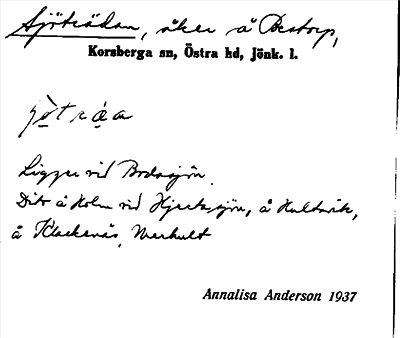 Sjöträdan, åker å Bestorp,
Korsberga sn, Östra hd, Jönk. l.
Ligger vid Brdasjön.
Dito å Holm vid Hjertasjön, å Hultvik,
å Klackenäs, Merhult
Annalisa Anderson 1937